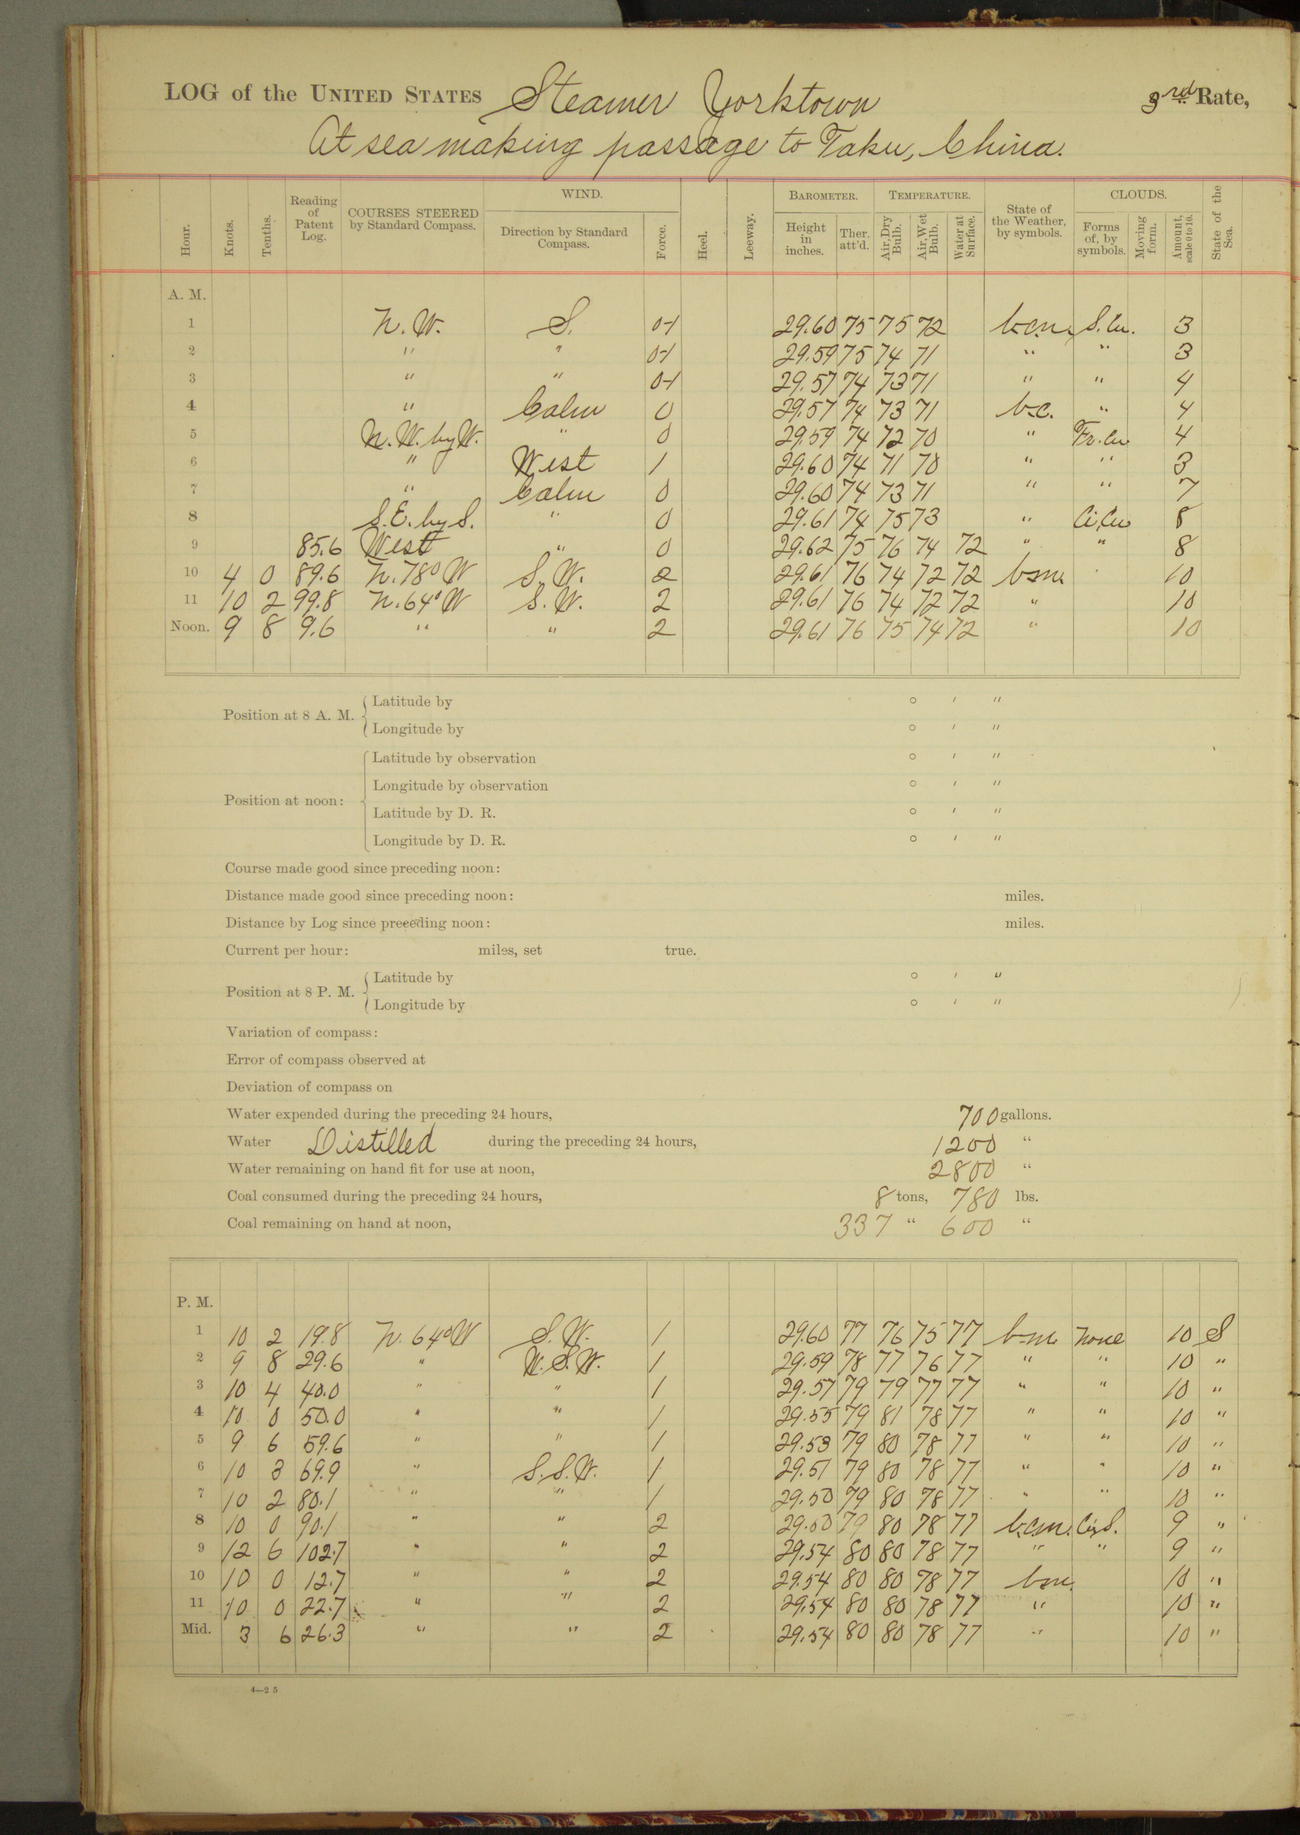 LOG of the UNITED STATES Steamer Yorktown 3rd Rate,
At sea making passage to Taku, China.
Hour. Knots. Tenths. Reading of Patent Log. COURSES STEERED by Standard Compass. WIND. Direction by Standard Compass. Force. Heel. Leeway. BAROMETER. Height in inches. Ther. att'd. TEMPERATURE. Air, Dry Bulb. Air, Wet Bulb. Water at Surface. State of the Weather, by symbols. CLOUDS. Forms of, by symbols. Moving form. Amount, scale 0 to 10. State of the Sea.
A. M.
1 N. W. S. 0-1 29.60 75 75 72 b.c.m. S. Cu. 3
2 " " 0-1 29.59 75 74 71 " " 3
3 " " 0-1 29.57 74 73 71 " " 4
4 " Calm 0 29.57 74 73 71 b.c. " 4
5 N. W. by W. " 0 29.59 74 72 70 " Fr. Cu 4
6 " West 1 29.60 74 71 70 " " 3
7 " Calm 0 29.60 74 73 71 " " 7
8 S. E. by S. " 0 29.61 74 75 73 " Ci. Cu 8
9 85.6 West " 0 29.62 75 76 74 72 " " 8
10 4 0 89.6 N. 78° W S. W. 2 29.61 76 74 72 72 b.m. 10
11 10 2 99.8 N. 64° W S. W. 2 29.61 76 74 72 72 " 10
Noon. 9 8 9.6 " " 2 29.61 76 75 74 72 " 10
Position at 8 A. M. Latitude by ° ′ ″
Longitude by ° ′ ″
Position at noon: Latitude by observation ° ′ ″
Longitude by observation ° ′ ″
Latitude by D. R. ° ′ ″
Longitude by D. R. ° ′ ″
Course made good since preceding noon:
Distance made good since preceding noon: miles.
Distance by Log since preceding noon: miles.
Current per hour: miles, set true.
Position at 8 P. M. Latitude by ° ′ ″
Longitude by ° ′ ″
Variation of compass:
Error of compass observed at
Deviation of compass on
Water expended during the preceding 24 hours, 700 gallons.
Water Distilled during the preceding 24 hours, 1200 "
Water remaining on hand fit for use at noon, 2800 "
Coal consumed during the preceding 24 hours, 8 tons, 780 lbs.
Coal remaining on hand at noon, 337 " 600 "
P. M.
1 10 2 19.8 N. 64° W S. W. 1 29.60 77 76 75 77 b.m. None 10 S
2 9 8 29.6 " W. S. W. 1 29.59 78 77 76 77 " " 10 "
3 10 4 40.0 " " 1 29.57 79 79 77 77 " " 10 "
4 10 0 50.0 " " 1 29.55 79 81 78 77 " " 10 "
5 9 6 59.6 " " 1 29.53 79 80 78 77 " " 10 "
6 10 3 69.9 " S. S. W. 1 29.51 79 80 78 77 " " 10 "
7 10 2 80.1 " " 1 29.50 79 80 78 77 " " 10 "
8 10 0 90.1 " " 2 29.50 79 80 78 77 b.c.m. Ci. S. 9 "
9 12 6 102.7 " " 2 29.54 80 80 78 77 " " 9 "
10 10 0 12.7 " " 2 29.54 80 80 78 77 b.m. 10 "
11 10 0 22.7 " " 2 29.54 80 80 78 77 " 10 "
Mid. 3 6 26.3 " " 2 29.54 80 80 78 77 " 10 "
4—25